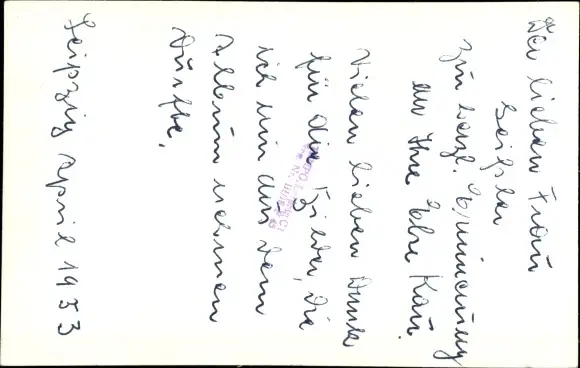 Der lieben Frau
zur herzl. Erinnerung
an Ihre
Vielen lieben Dank
für die Bilder, die
ich mir aus dem
Album nehmen
durfte.
Leipzig April 1953